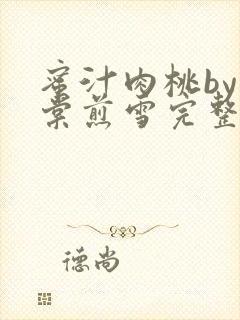 蜜汁肉桃by
棠煎雪完整
德尚